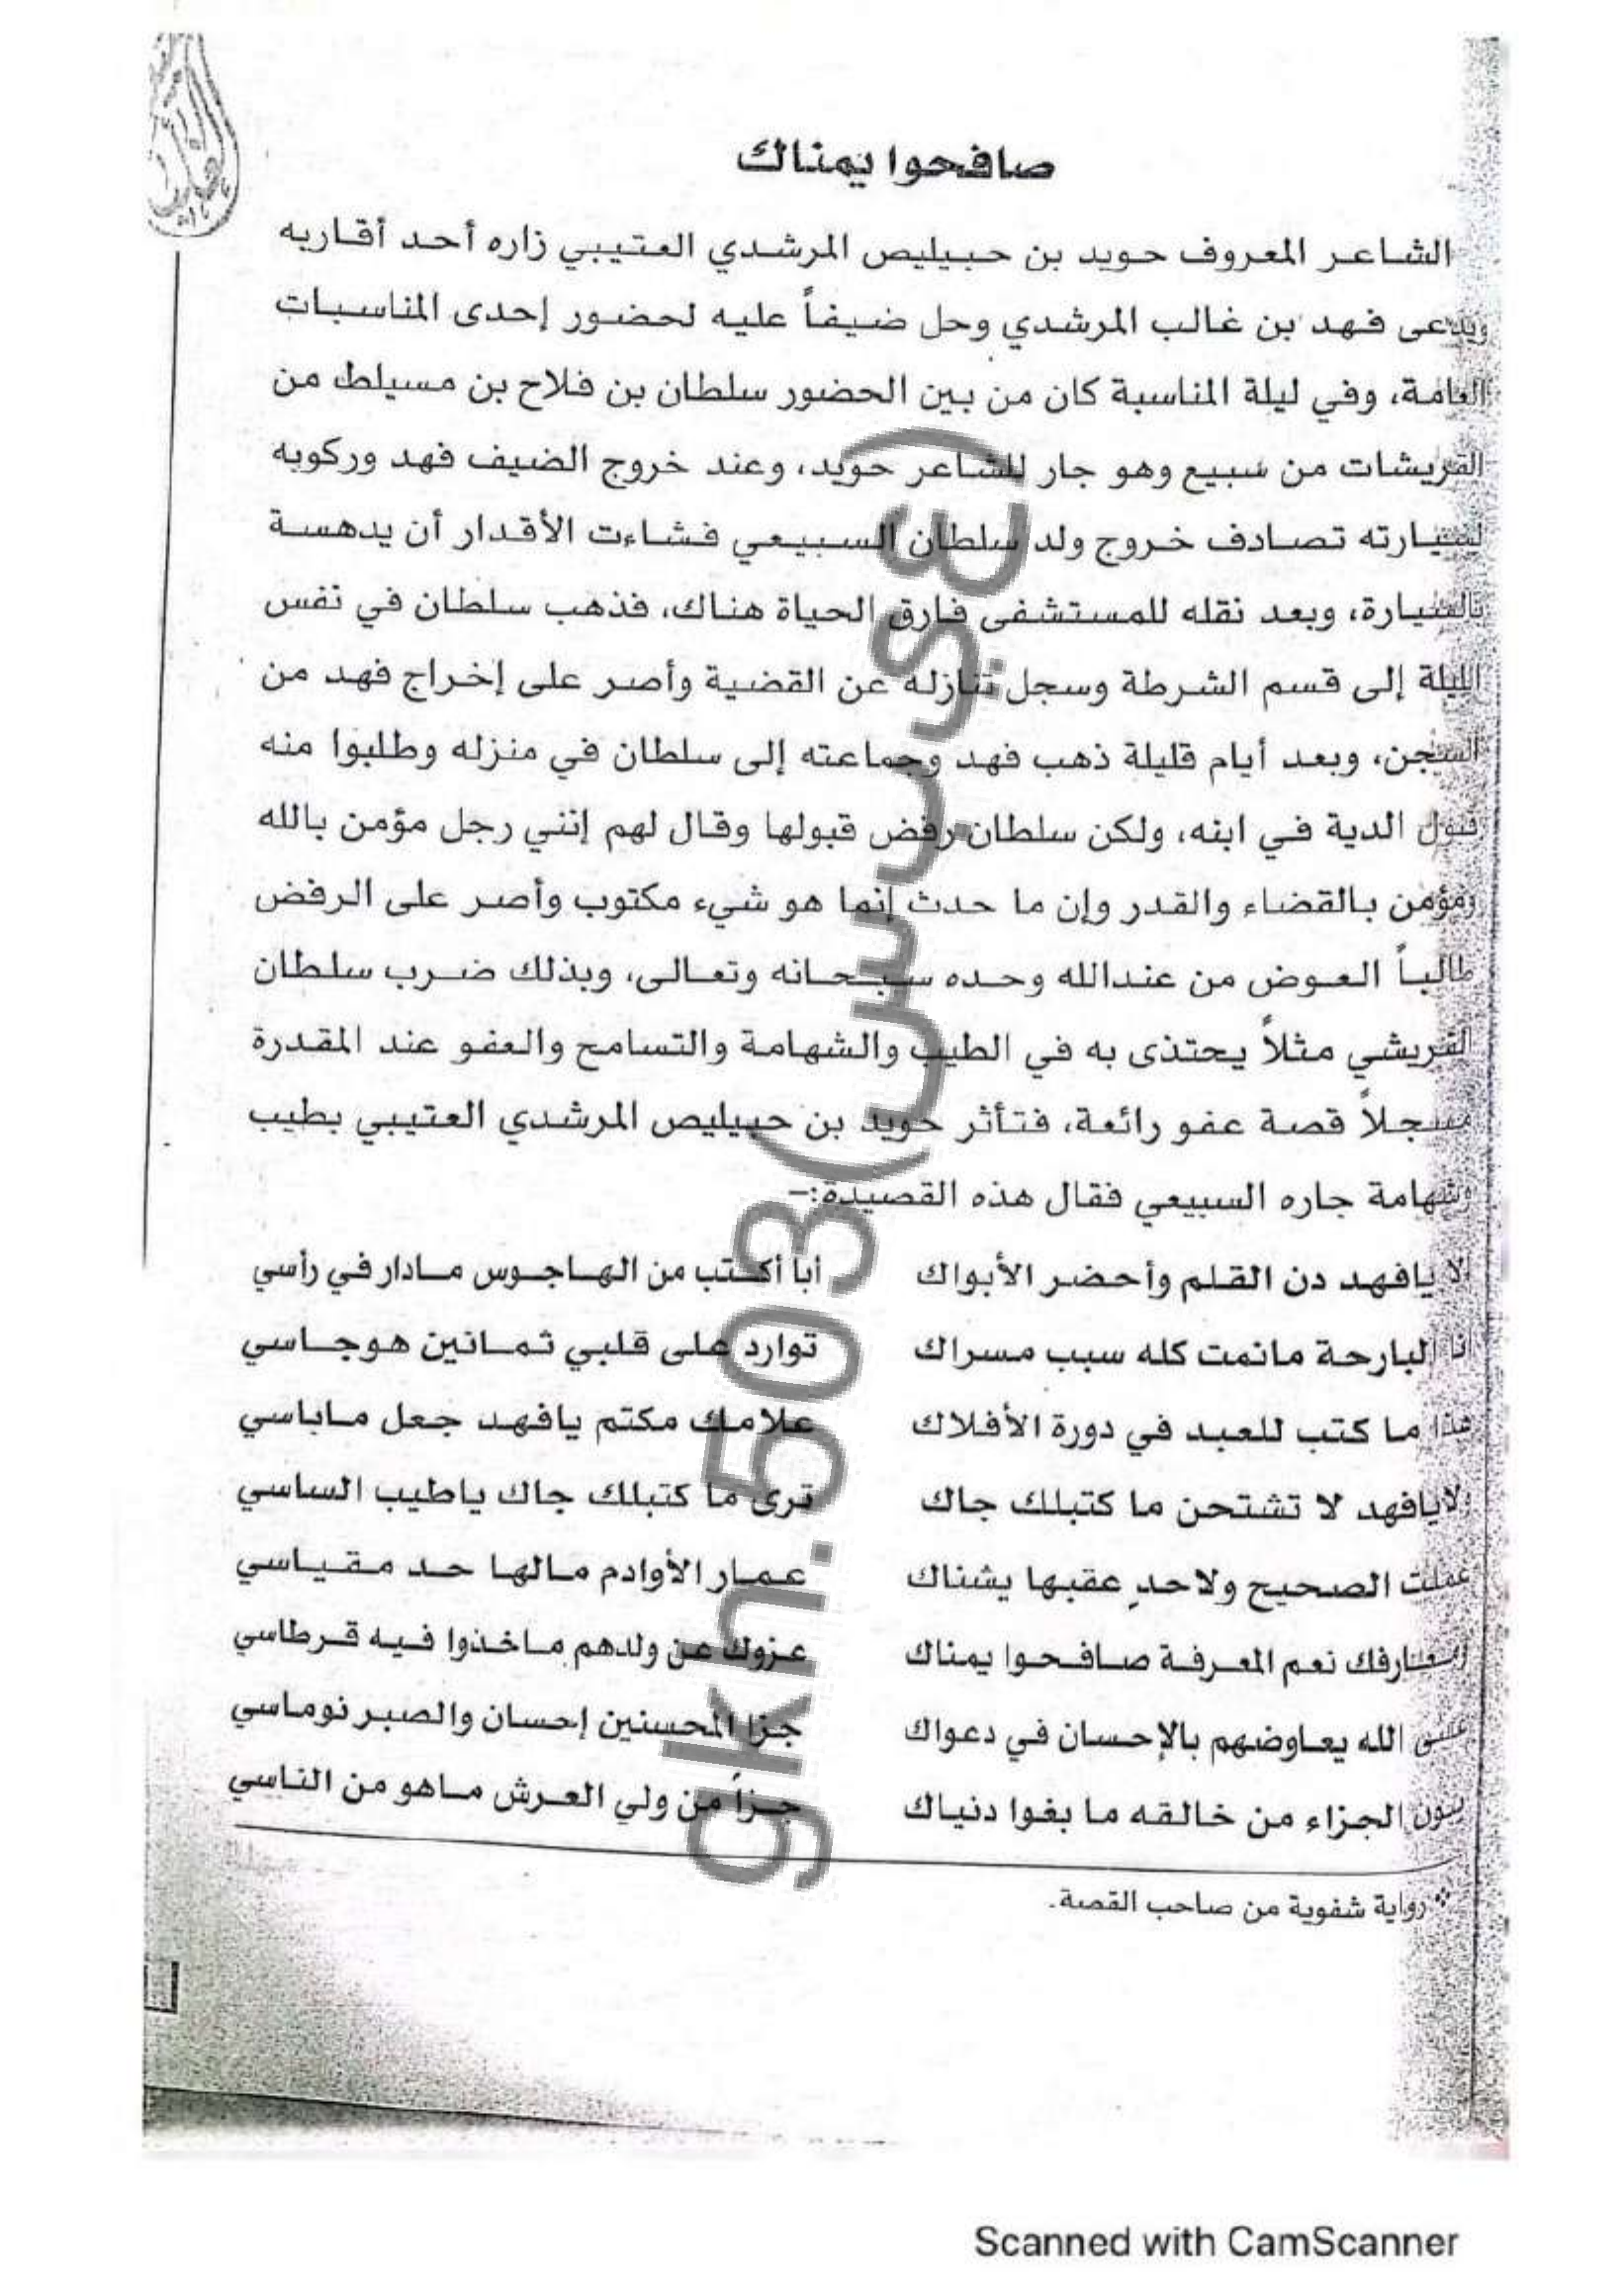 صافحوا يمناك
الشاعر المعروف حويد بن حبيليص المرشدي العتيبي زاره أحد أقاربه
ويدعى فهد بن غالب المرشدي وحل ضيفاً عليه لحضور إحدى المناسبات
العامة، وفي ليلة المناسبة كان من بين الحضور سلطان بن فلاح بن مسيلط من
القريشات من سبيع وهو جار للشاعر حويد، وعند خروج الضيف فهد وركوبه
لسيارته تصادف خروج ولد سلطان السبيعي فشاءت الأقدار أن يدهسة
بالسيارة، وبعد نقله للمستشفى فارق الحياة هناك، فذهب سلطان في نفس
الليلة إلى قسم الشرطة وسجل تنازله عن القضية وأصر على إخراج فهد من
السجن، وبعد أيام قليلة ذهب فهد وجماعته إلى سلطان في منزله وطلبوا منه
قبول الدية في ابنه، ولكن سلطان رفض قبولها وقال لهم إنني رجل مؤمن بالله
ومؤمن بالقضاء والقدر وإن ما حدث إنما هو شيء مكتوب وأصر على الرفض
طالباً العوض من عندالله وحده سبحانه وتعالى، وبذلك ضرب سلطان
القريشي مثلاً يحتذى به في الطيب والشهامة والتسامح والعفو عند المقدرة
مسجلاً قصة عفو رائعة، فتأثر حويد بن حبيليص المرشدي العتيبي بطيب
وشهامة جاره السبيعي فقال هذه القصيدة:–
ألا يافهد دن القلم وأحضر الأبواك أبا أكتب من الهاجوس مادار في رأسي
أنا البارحة مانمت كله سبب مسراك توارد على قلبي ثمانين هوجاسي
هذا ما كتب للعبد في دورة الأفلاك علامك مكتم يافهد جعل ماباسي
ألا يافهد لا تشتحن ما كتبلك جاك ترى ما كتبلك جاك ياطيب الساسي
عملت الصحيح ولاحدٍ عقبها يشناك عمار الأوادم مالها حد مقياسي
نعم المعرفة صافحوا يمناك عزوك عن ولدهم ماخذوا فيه قرطاسي
الله يعاوضهم بالإحسان في دعواك جزا المحسنين إحسان والصبر نوماسي
الجزاء من خالقه ما بغوا دنياك جزاً من ولي العرش ماهو من الناسي
رواية شفوية من صاحب القصة.
gkh.503(س ب ي ع)
Scanned with CamScanner